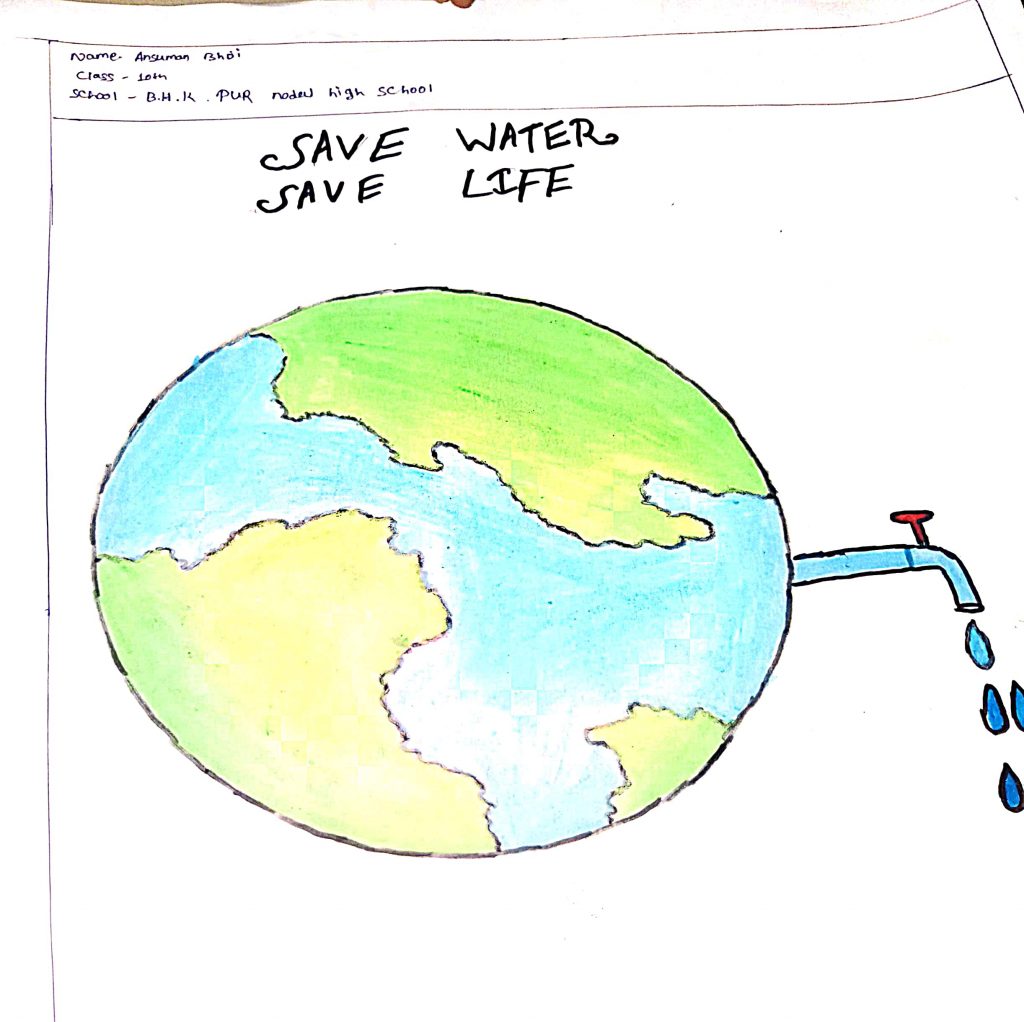 Name- Ansuman Bhoi
Class - 10th
School - B.H.K. PUR nodel high school
SAVE WATER
SAVE LIFE